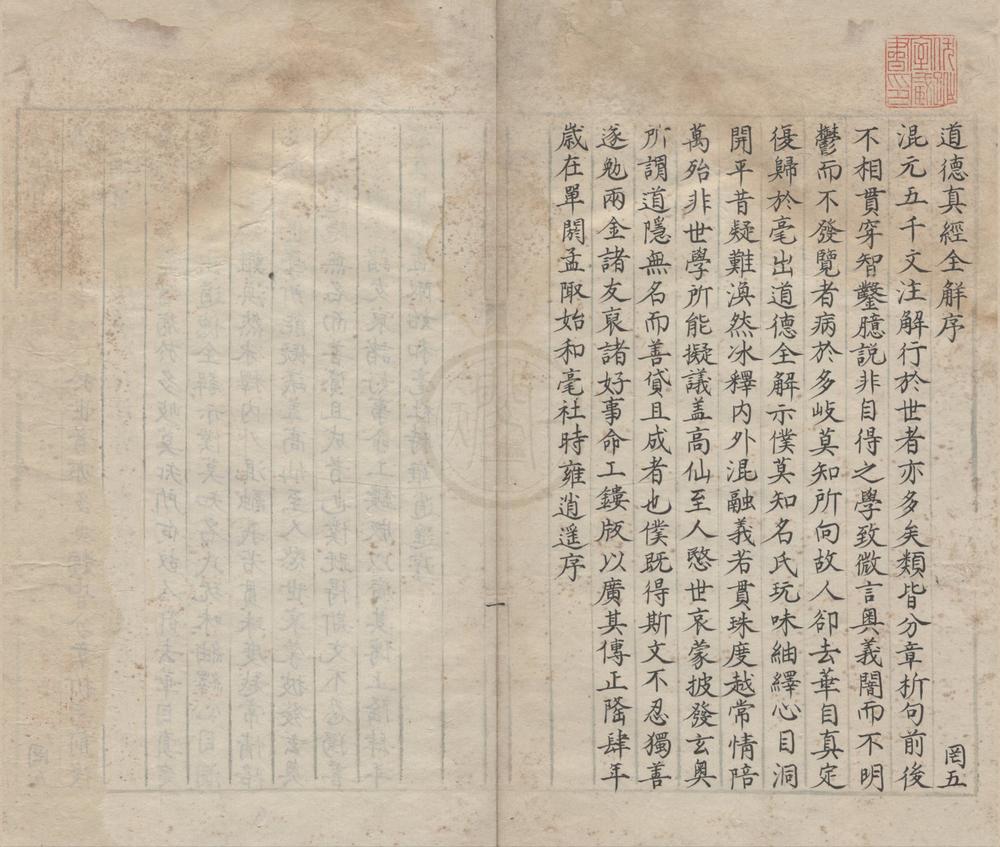 道德真經全解序
罔五
混元五千文注解行於世者亦多矣類皆分章析句前後
不相貫穿智鑿臆說非自得之學致微言奧義闇而不明
鬱而不發覽者病於多岐莫知所向故人郤去華自真定
復歸於毫出道德全解示僕莫知名氏玩味紬繹心目洞
開平昔疑難渙然冰釋内外混融義若貫珠度越常情陪
萬殆非世學所能擬議盖高仙至人愍世哀蒙披發玄奥
所謂道隱無名而善貸且成者也僕既得斯文不忍獨善
遂勉兩金諸友裒諸好事命工鏤版以廣其傳正隆肆年
歳在單閼孟陬始和毫社時雍逍遥序
一